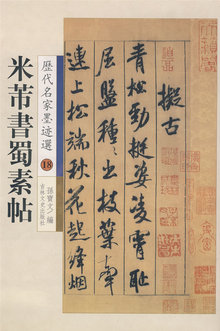 擬古
青松勁挺姿凌霄恥
屈盤種種出枝葉牽
連上松端秋花起絳烟
歷代名家墨迹選
18
孫寶文 編
吉林文史出版社
米芾書蜀素帖